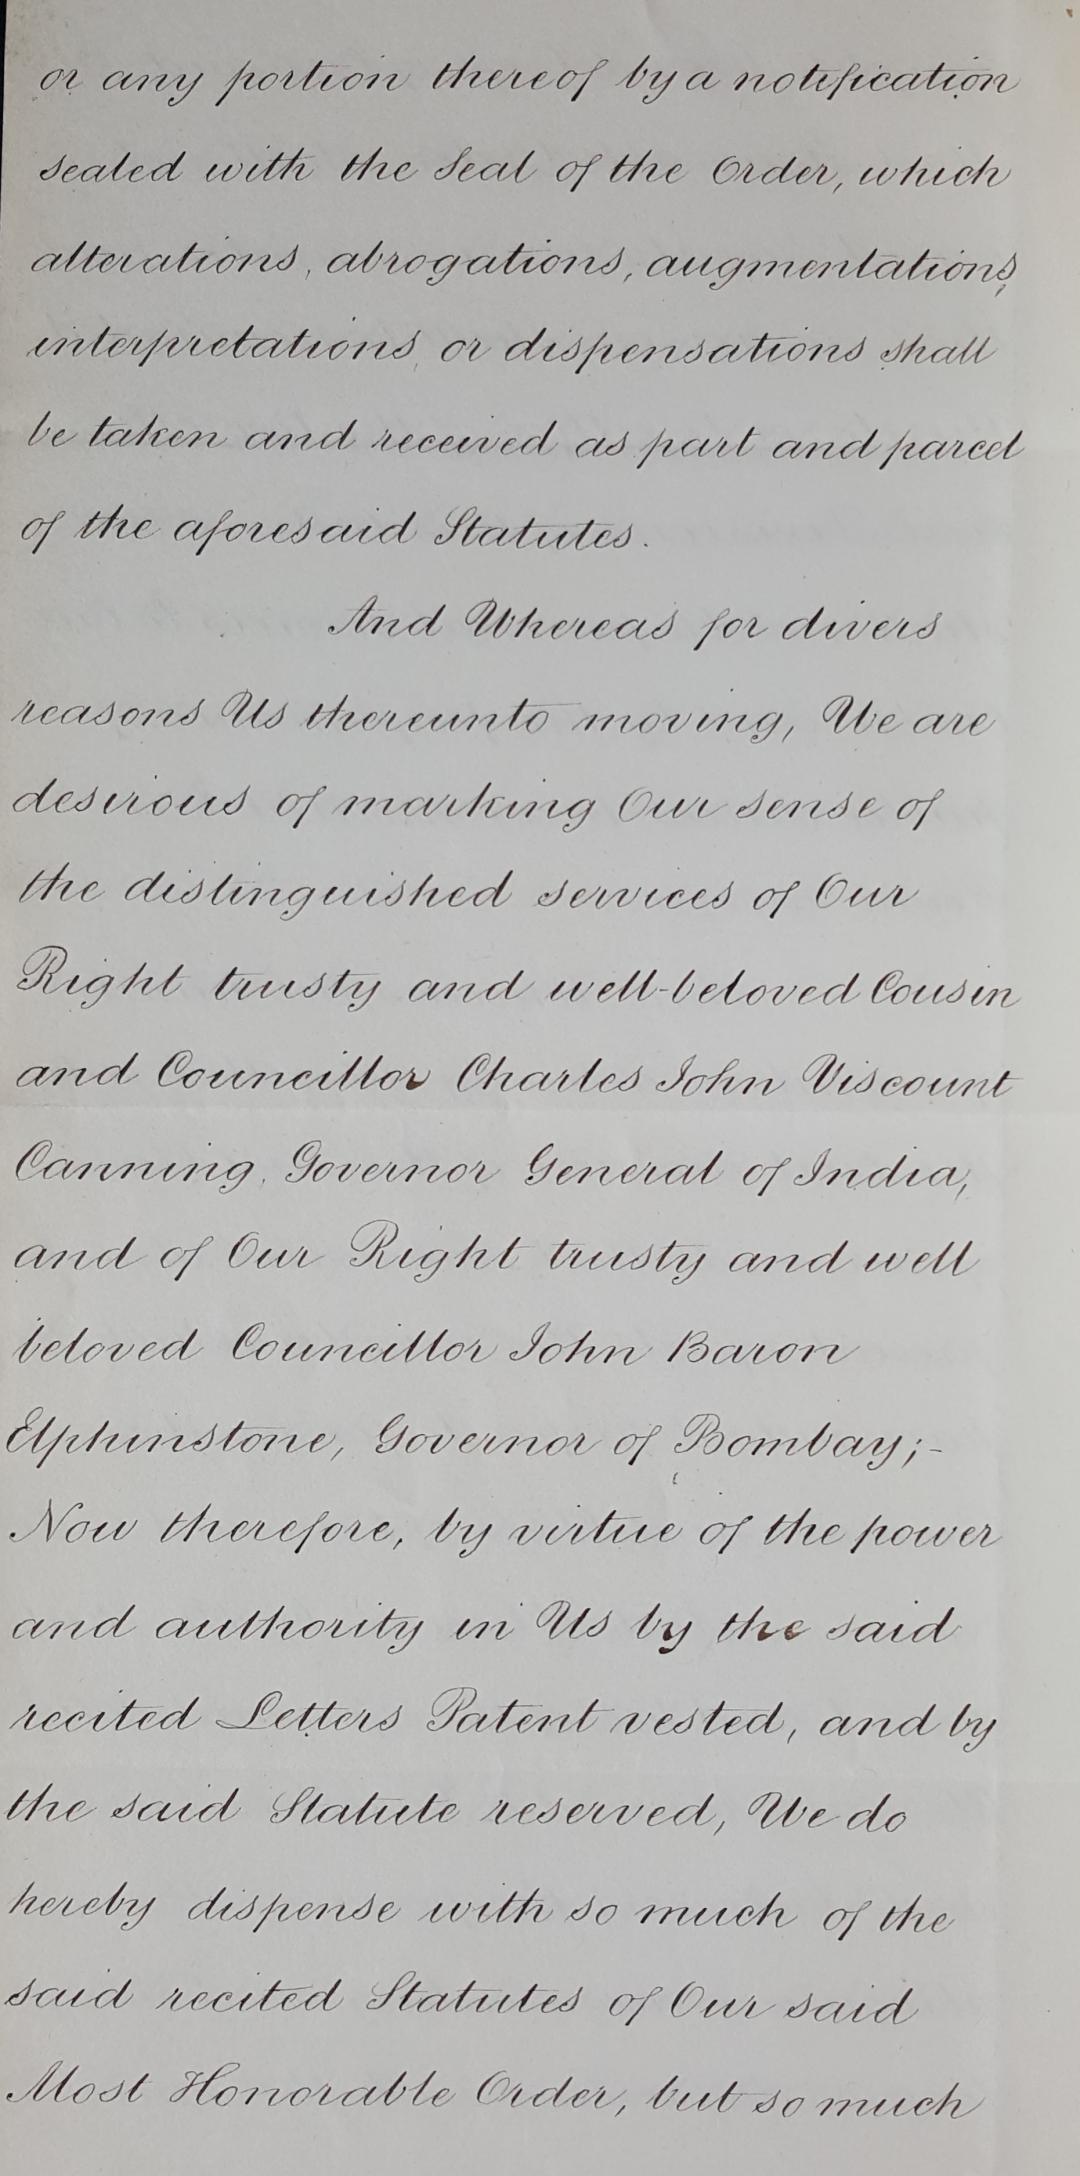 or any portion thereof by a notification
sealed with the Seal of the Order, which
alterations, abrogations, augmentations,
interpretations, or dispensations shall
be taken and received as part and parcel
of the aforesaid Statutes.
And Whereas for divers
reasons Us thereunto moving, We are
desirous of marking Our sense of
the distinguished services of Our
Right trusty and well-beloved Cousin
and Councillor Charles John Viscount
Canning, Governor General of India,
and of Our Right trusty and well
beloved Councillor John Baron
Elphinstone, Governor of Bombay;-
Now therefore, by virtue of the power
and authority in Us by the said
recited Letters Patent vested, and by
the said Statute reserved, We do
hereby dispense with so much of the
said recited Statutes of Our said
Most Honorable Order, but so much